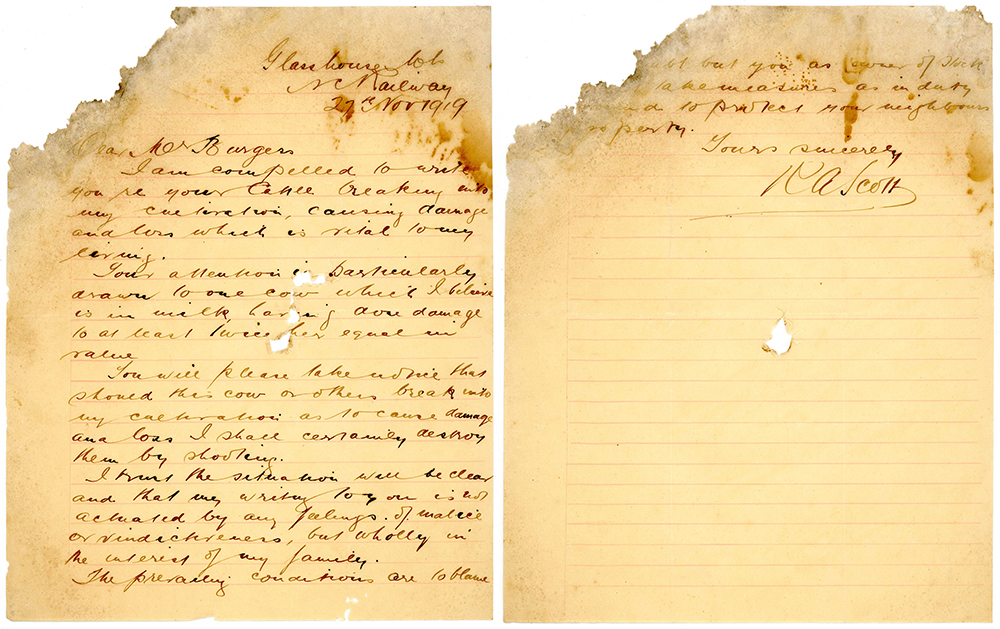 Glasshouse Mts
N C Railway
27th Nov 1919
Dear Mr Burgess
I am compelled to write
you re your Cattle breaking into
my cultivation, causing damage
and loss which is vital to my
living.
Your attention is particularly
drawn to one cow which I believe
is in milk having done damage
to at least twice her equal in
value
You will please take notice that
should this cow or others break into
my cultivation as to cause damage
and loss I shall certainly destroy
them by shooting.
I trust the situation will be clear
and that my writing to you is not
actuated by any feelings of malice
or vindictiveness, but wholly in
the interest of my family.
The prevailing conditions are to blame
but you as owner of stock
take measures as in duty
to protect your neighbours
property.
Yours sincerely
R A Scott